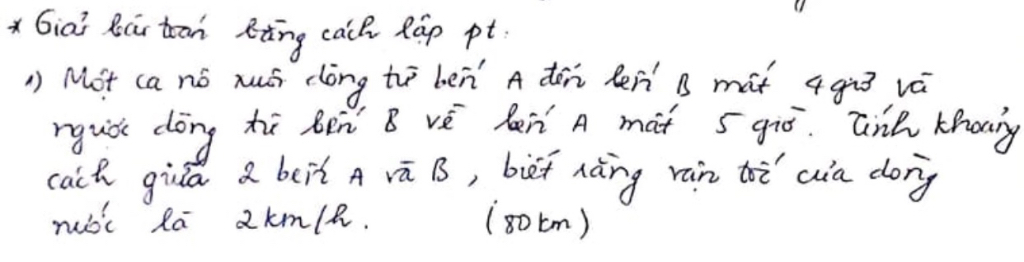 * Giải bài toán bằng cách lập pt.
1) Một ca nô xuôi dòng từ bến A đến bến B mất 4 giờ và
ngược dòng từ bến B về bến A mất 5 giờ. Tính khoảng
cách giữa 2 bến A và B, biết rằng vận tốc của dòng
nước là 2 km/h. (80 km)